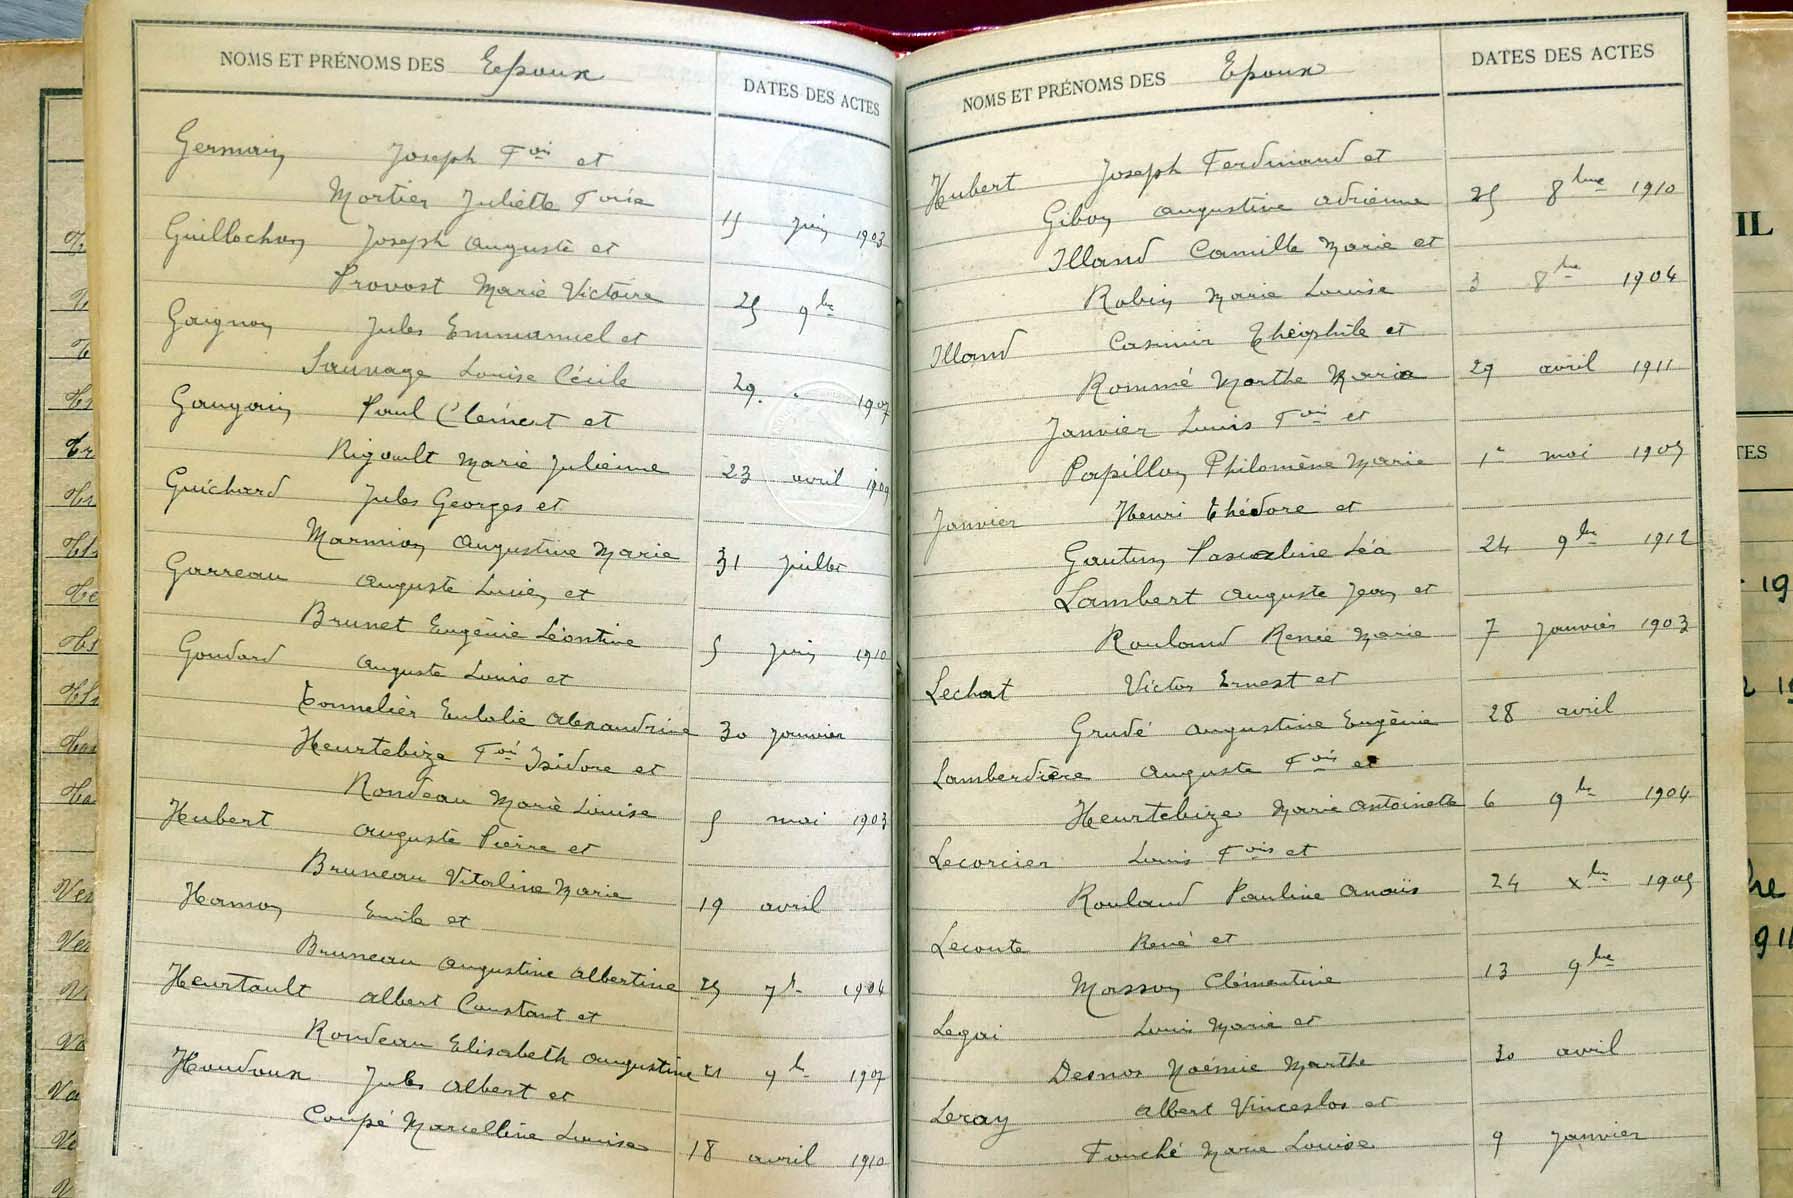 NOMS ET PRÉNOMS DES Epoux DATES DES ACTES
Germain Joseph Fois et
Mortier Juliette Foise 15 juin 1903
Guillochon Joseph Auguste et
Provost Marie Victoire 25 9bre
Gaignon Jules Emmanuel et
Sauvage Louise Cécile 29 " 1907
Gaugain Paul Clément et
Rigault Marie Julienne 23 avril 1909
Guichard Jules Georges et
Marmion Augustine Marie 31 juillet
Garreau Auguste Lucien et
Brunet Eugénie Léontine 5 juin 1910
Goudard Auguste Louis et
Tonnelier Eulalie Alexandrine 30 janvier
Heurtebize Fois Isidore et
Rondeau Marie Louise 5 mai 1903
Hubert Auguste Pierre et
Bruneau Vitaline Marie 19 avril
Hamon Emile et
Bruneau Augustine Albertine 25 7b 1904
Heurtault Albert Constant et
Rondeau Elisabeth Augustine 21 9b 1907
Houdoux Jules Albert et
Coupé Marcelline Louise 18 avril 1910
NOMS ET PRÉNOMS DES Epoux DATES DES ACTES
Hubert Joseph Ferdinand et
Gibon Augustine Adrienne 25 8bre 1910
Illand Camille Marie et
Robin Marie Louise 3 8bre 1904
Illand Casimir Théophile et
Rommé Marthe Maria 29 avril 1911
Janvier Louis Fois et
Papillon Philomène Marie 1er mai 1905
Janvier Henri Théodore et
Pascaline Léa 24 9bre 1912
Lambert Auguste Jean et
Rouland Renée Marie 7 janvier 1903
Lechat Victor Ernest et
Grudé Augustine Eugénie 28 avril
Lamberdière Auguste Fois et
Heurtebize Marie Antoinette 6 9bre 1904
Lecorcier Louis Fois et
Rouland Pauline Anaïs 24 xbre 1905
Leconte René et
Masson Clémentine 13 9bre
Legai Louis Marie et
Desnos Noémie Marthe 30 avril
Leray Albert Vinceslas et
Fouché Marie Louise 9 janvier